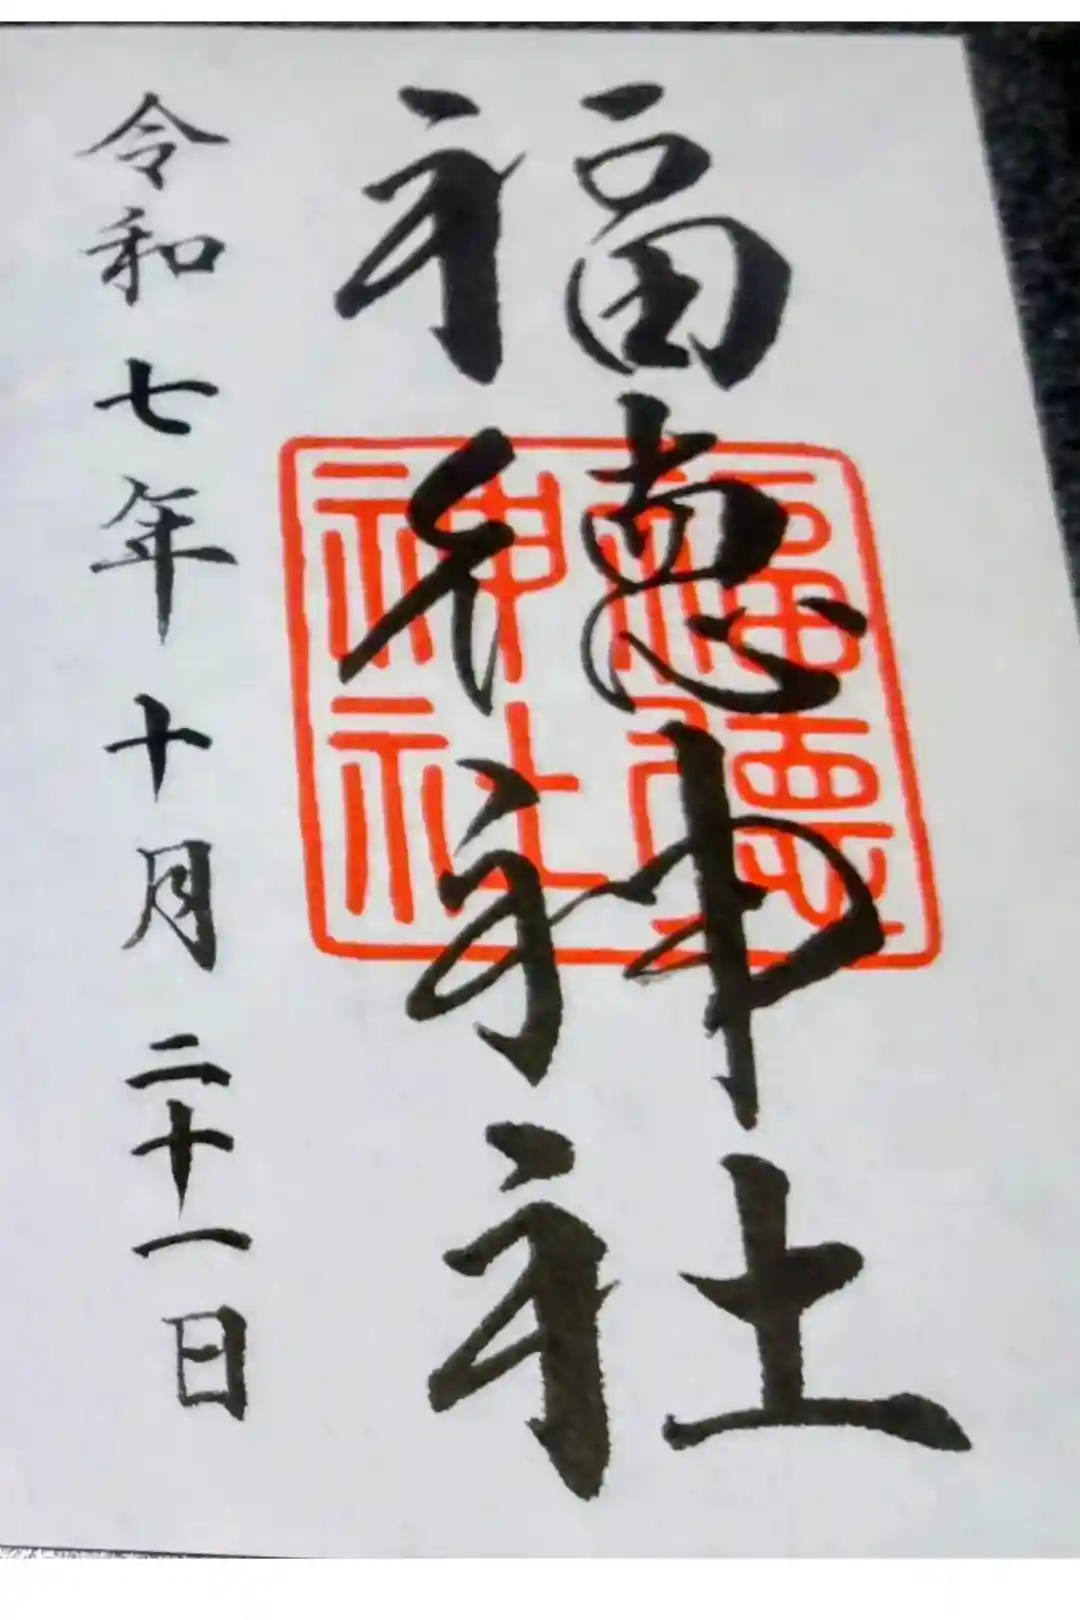 福徳神社
福徳
神社
令和七年十月二十一日